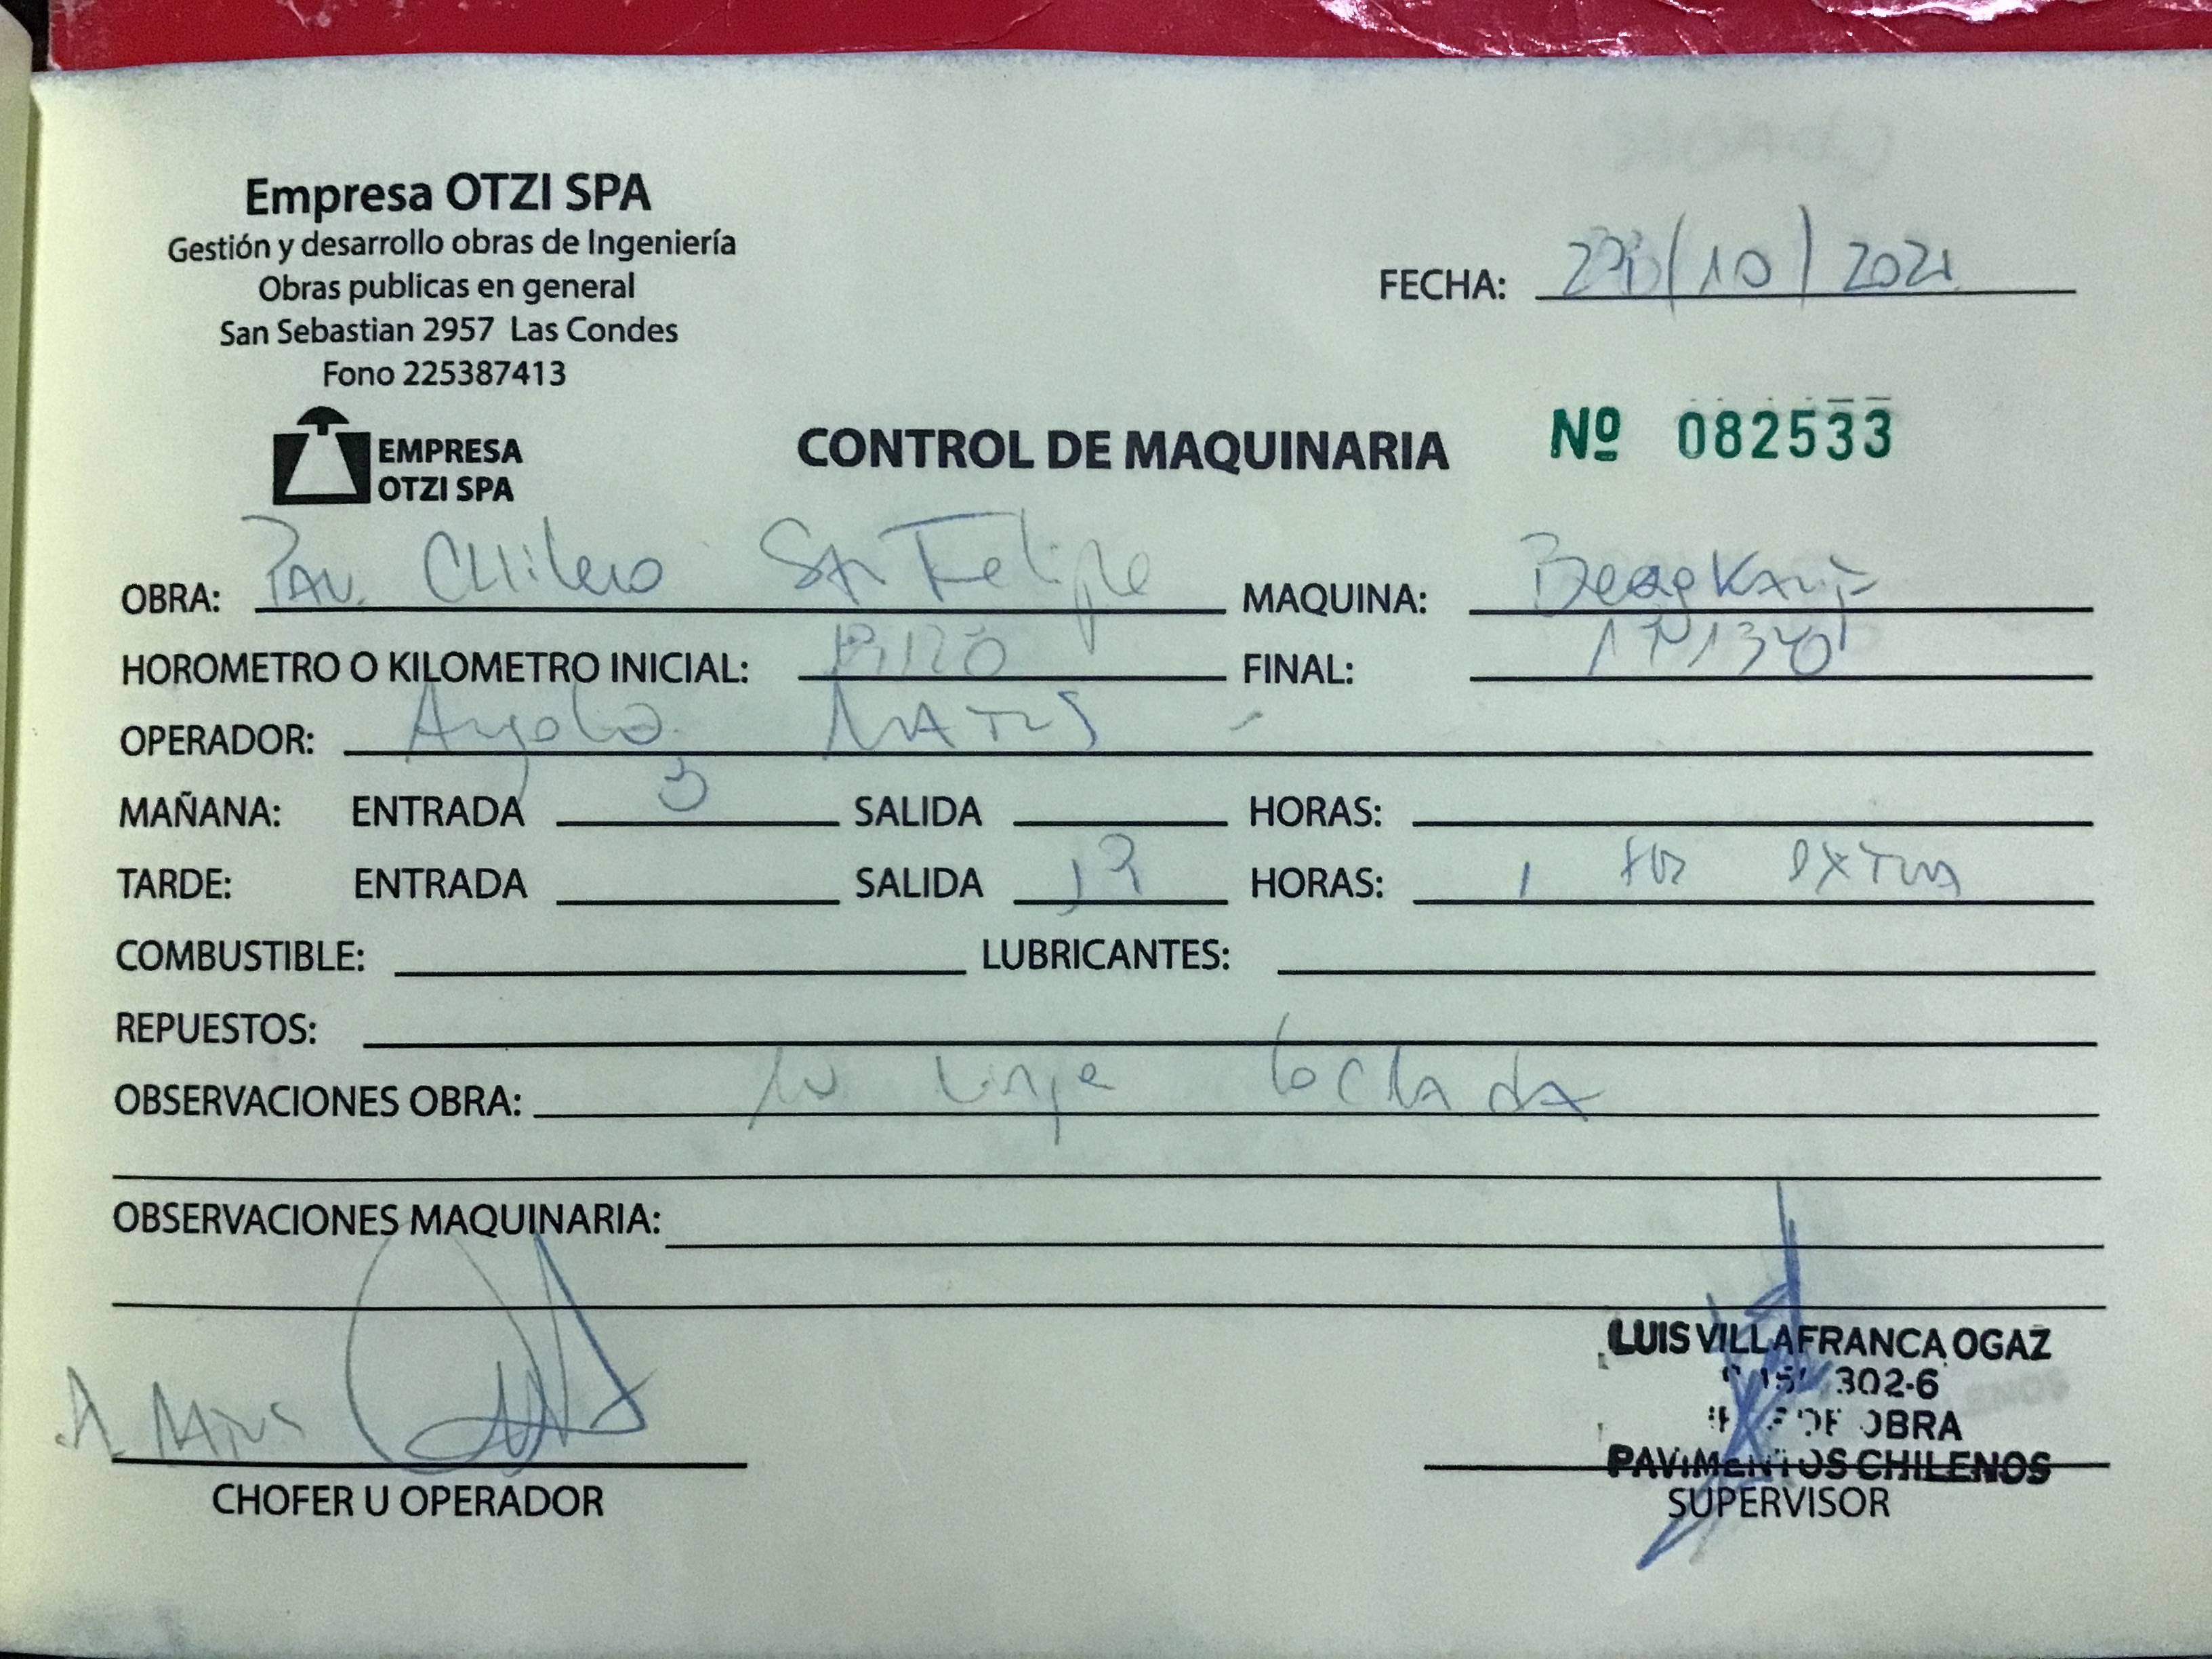 Empresa OTZI SPA
Gestión y desarrollo obras de Ingeniería
Obras publicas en general
San Sebastian 2957 Las Condes
Fono 225387413
EMPRESA
OTZI SPA
FECHA: /10/2021
CONTROL DE MAQUINARIA Nº 082533
OBRA: Pav. Chileno San Felipe MAQUINA:
HOROMETRO O KILOMETRO INICIAL: FINAL:
OPERADOR: Angelo MATUS
MAÑANA: ENTRADA SALIDA HORAS:
TARDE: ENTRADA SALIDA HORAS: 1 extra
COMBUSTIBLE: LUBRICANTES:
REPUESTOS:
OBSERVACIONES OBRA:
OBSERVACIONES MAQUINARIA:
A MATUS
CHOFER U OPERADOR
LUIS VILLAFRANCA OGAZ
302-6
DE OBRA
PAVIMENTOS CHILENOS
SUPERVISOR